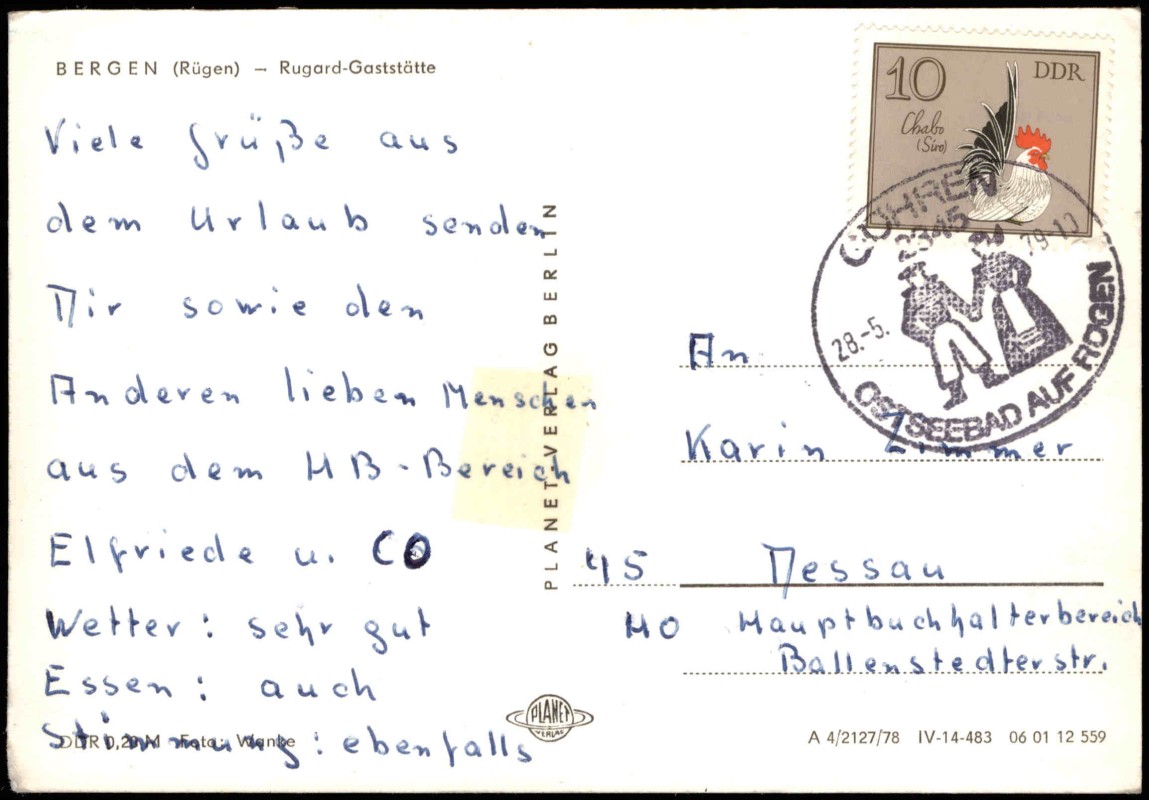 BERGEN (Rügen) — Rugard-Gaststätte
Viele Grüße aus
dem Urlaub senden
Dir sowie den
Anderen lieben Menschen
aus dem HB-Bereich
Elfriede u. CO
Wetter: sehr gut
Essen: auch
Stimmung: ebenfalls
DDR 0,20 M Foto: Wanke
PLANET-VERLAG BERLIN
PLANET
VERLAG
10 DDR
Chabo
(Siro)
GÖHREN
2345
28.-5. 79-10
OSTSEEBAD AUF RÜGEN
An
Karin Zimmer
45 Dessau
HO Hauptbuchhalterbereich
Ballenstedterstr.
A 4/2127/78 IV-14-483 06 01 12 559